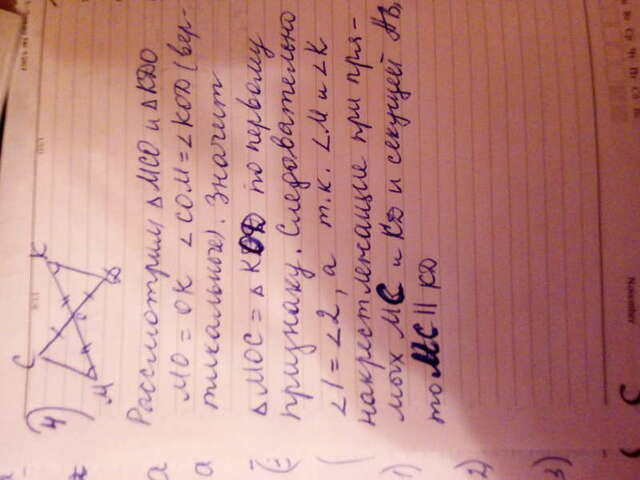 4)
C
M
O
K
D
Рассмотрим △MCO и △KDO
MO = OK ∠COM = ∠KOD (вер-
тикальные). Значит
△MOC = △KOD по первому
признаку. Следовательно
∠1 = ∠2, а т.к. ∠M и ∠K
накрест лежащие при пря-
мых MC и KD и секущей AB,
то MC || KD
1)
2)
3)
November